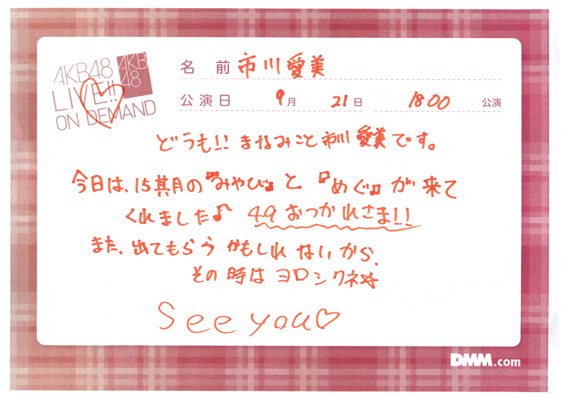 AKB48
LIVE!!
ON DEMAND
AKB
48
名 前 市川愛美
公演日 9月 21日 18:00 公演
どうも!! まなみこと市川愛美です。
今日は、15期の『みやび』と『めぐ』が来て
くれました♪ 49おつかれさま!!
また、出てもらうかもしれないから、
その時はヨロシクネ☆
See you♡
DMM.com